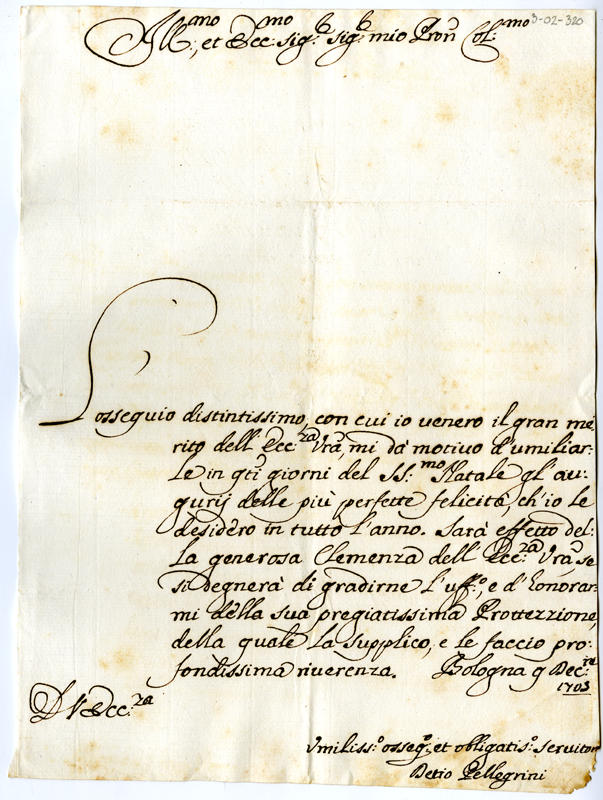 Ill:mo, et Ecc:mo Sig:r Sig:r mio Pron Col:mo
3-02-320
L'osseguio distintissimo, con cui io venero il gran me=
rito dell'Ecc:za Vra, mi dà motivo d'umiliar=
le in qti giorni del SS:mo Natale gl'au=
gurij delle più perfette felicità, ch'io le
desidero in tutto l'anno. Sarà effetto del=
la generosa Clemenza dell'Ecc:za Vra, se
si degnerà di gradirne l'uff:o, e d'honorar=
mi della sua pregiatissima Prottezzione,
della quale la supplico, e le faccio pro=
fondissima riverenza. Bologna 9 Dec:re
1703
D V Ecc:za
Umiliss:o osseg:o, et obligatis:o servitor
Detio Pellegrini